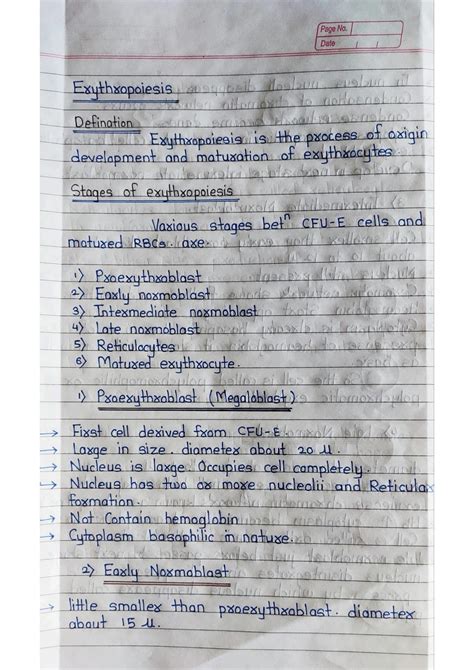 Page No.
Date
Erythropoiesis
Defination
Erythropoiesis is the process of origin
development and maturation of erythrocytes.
Stages of erythropoiesis
Various stages betⁿ CFU-E cells and
matured RBCs are.
1) Proerythroblast
2) Early normoblast
3) Intermediate normoblast
4) Late normoblast
5) Reticulocytes
6) Matured erythrocyte.
1) Proerythroblast (Megaloblast)
→ First cell derived from CFU-E
→ Large in size. diameter about 20 μ.
→ Nucleus is large. Occupies cell completely.
→ Nucleus has two or more nucleolii and Reticular
formation.
→ Not Contain hemoglobin
→ Cytoplasm basophilic in nature.
2) Early Normoblast
→ little smaller than proerythroblast. diameter
about 15 μ.